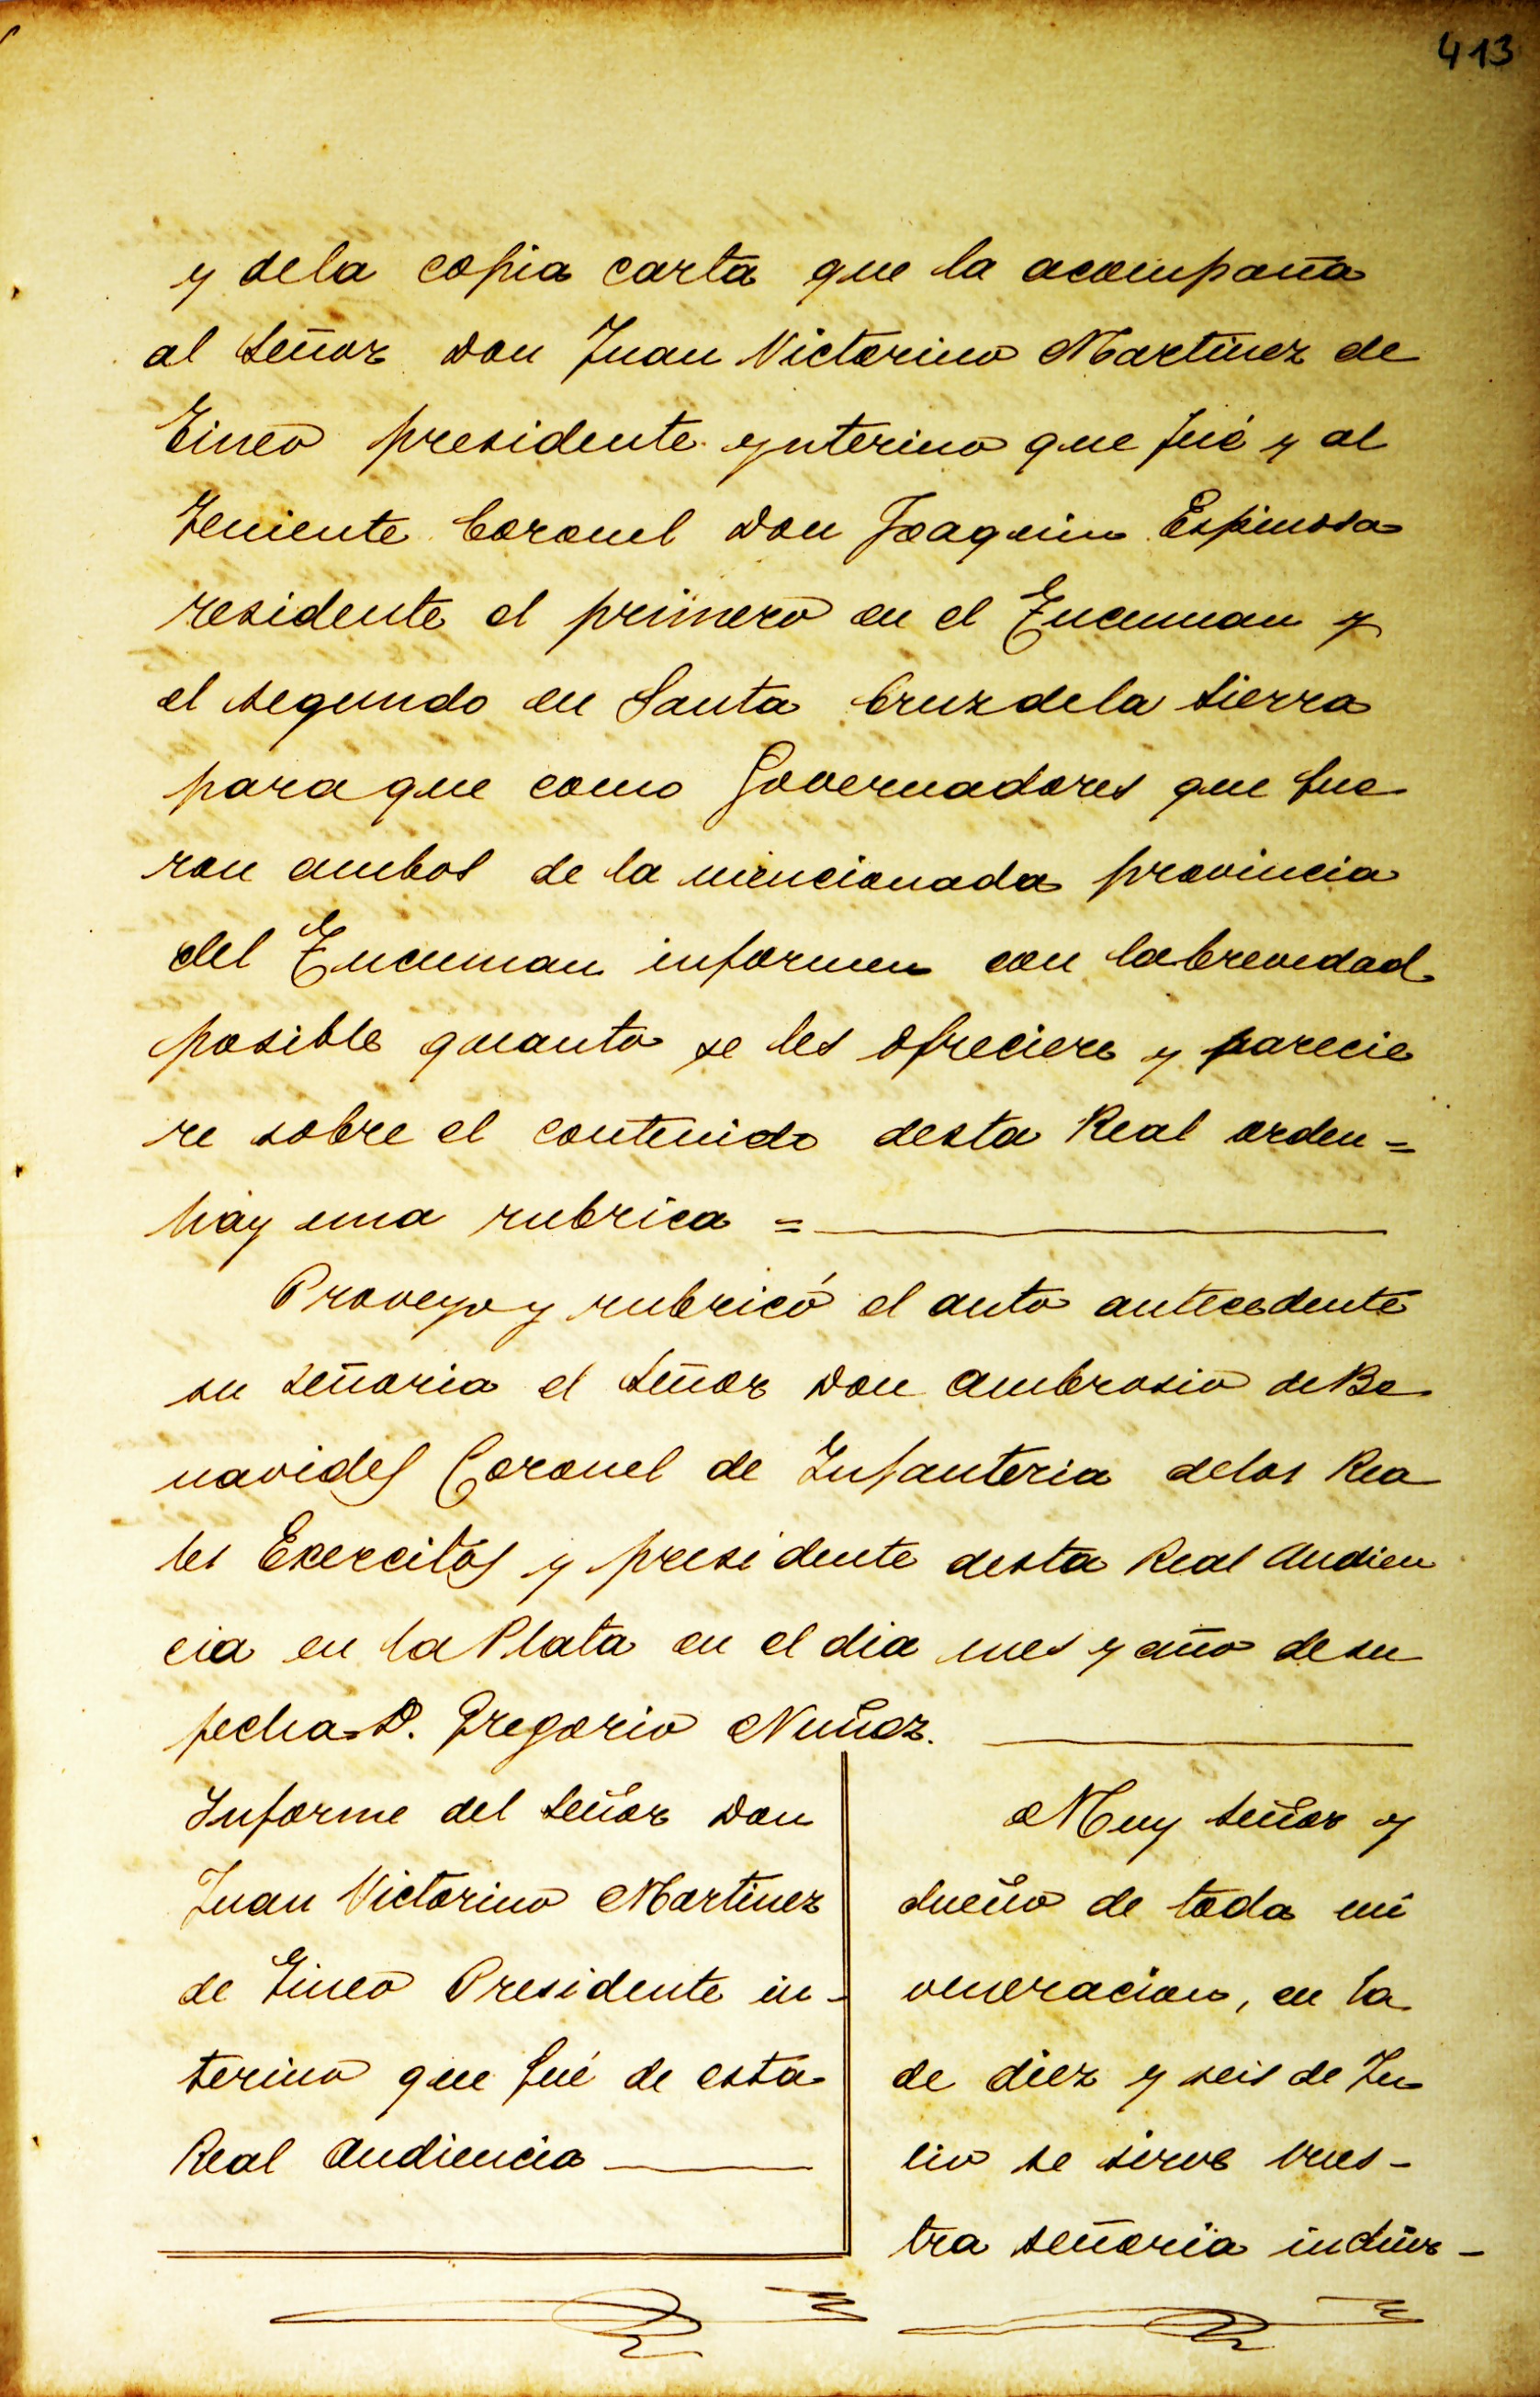 413
y dela copia carta que la acompaña
al Señor Don Juan Victorino Martinez de
Tineo presidente ynterino que fué y al
Teniente Coronel Don Joaquin Espinosa
residente el primero en el Tucuman y
el segundo en Santa Cruz dela Sierra
para que como Governadores que fue
ron ambos de la mencionada provincia
del Tucuman informen con la brevedad
posible quanto se les ofreciere y parecie
re sobre el contenido desta Real orden =
hay una rubrica =
Proveyo y rubricó el auto antecedente
su señoria el Señor Don Ambrosio de Be
navides Coronel de Infanteria delos Rea
les Exercitos y presidente desta Real Audien
cia en la Plata en el dia mes y año de su
fecha. D. Gregorio Nuñez.
Informe del Señor Don
Juan Victorino Martinez
de Tineo Presidente in-
terino que fué de esta
Real Audiencia
Muy Señor y
dueño de toda mi
veneracion, en la
de diez y seis de Ju
lio se sirve vues-
tra señoria